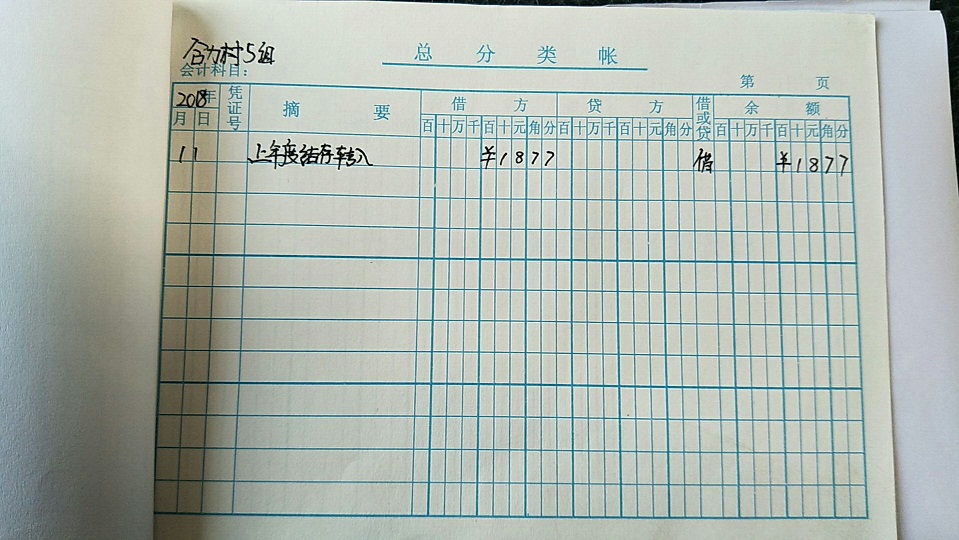 合力村5组
总分类帐
会计科目:
第 页
2018年 凭证号 摘要 借方 贷方 借或贷 余额
月 日 百十万千百十元角分 百十万千百十元角分 百十万千百十元角分
1 1 上年度结存转入 ¥1877 借 ¥1877